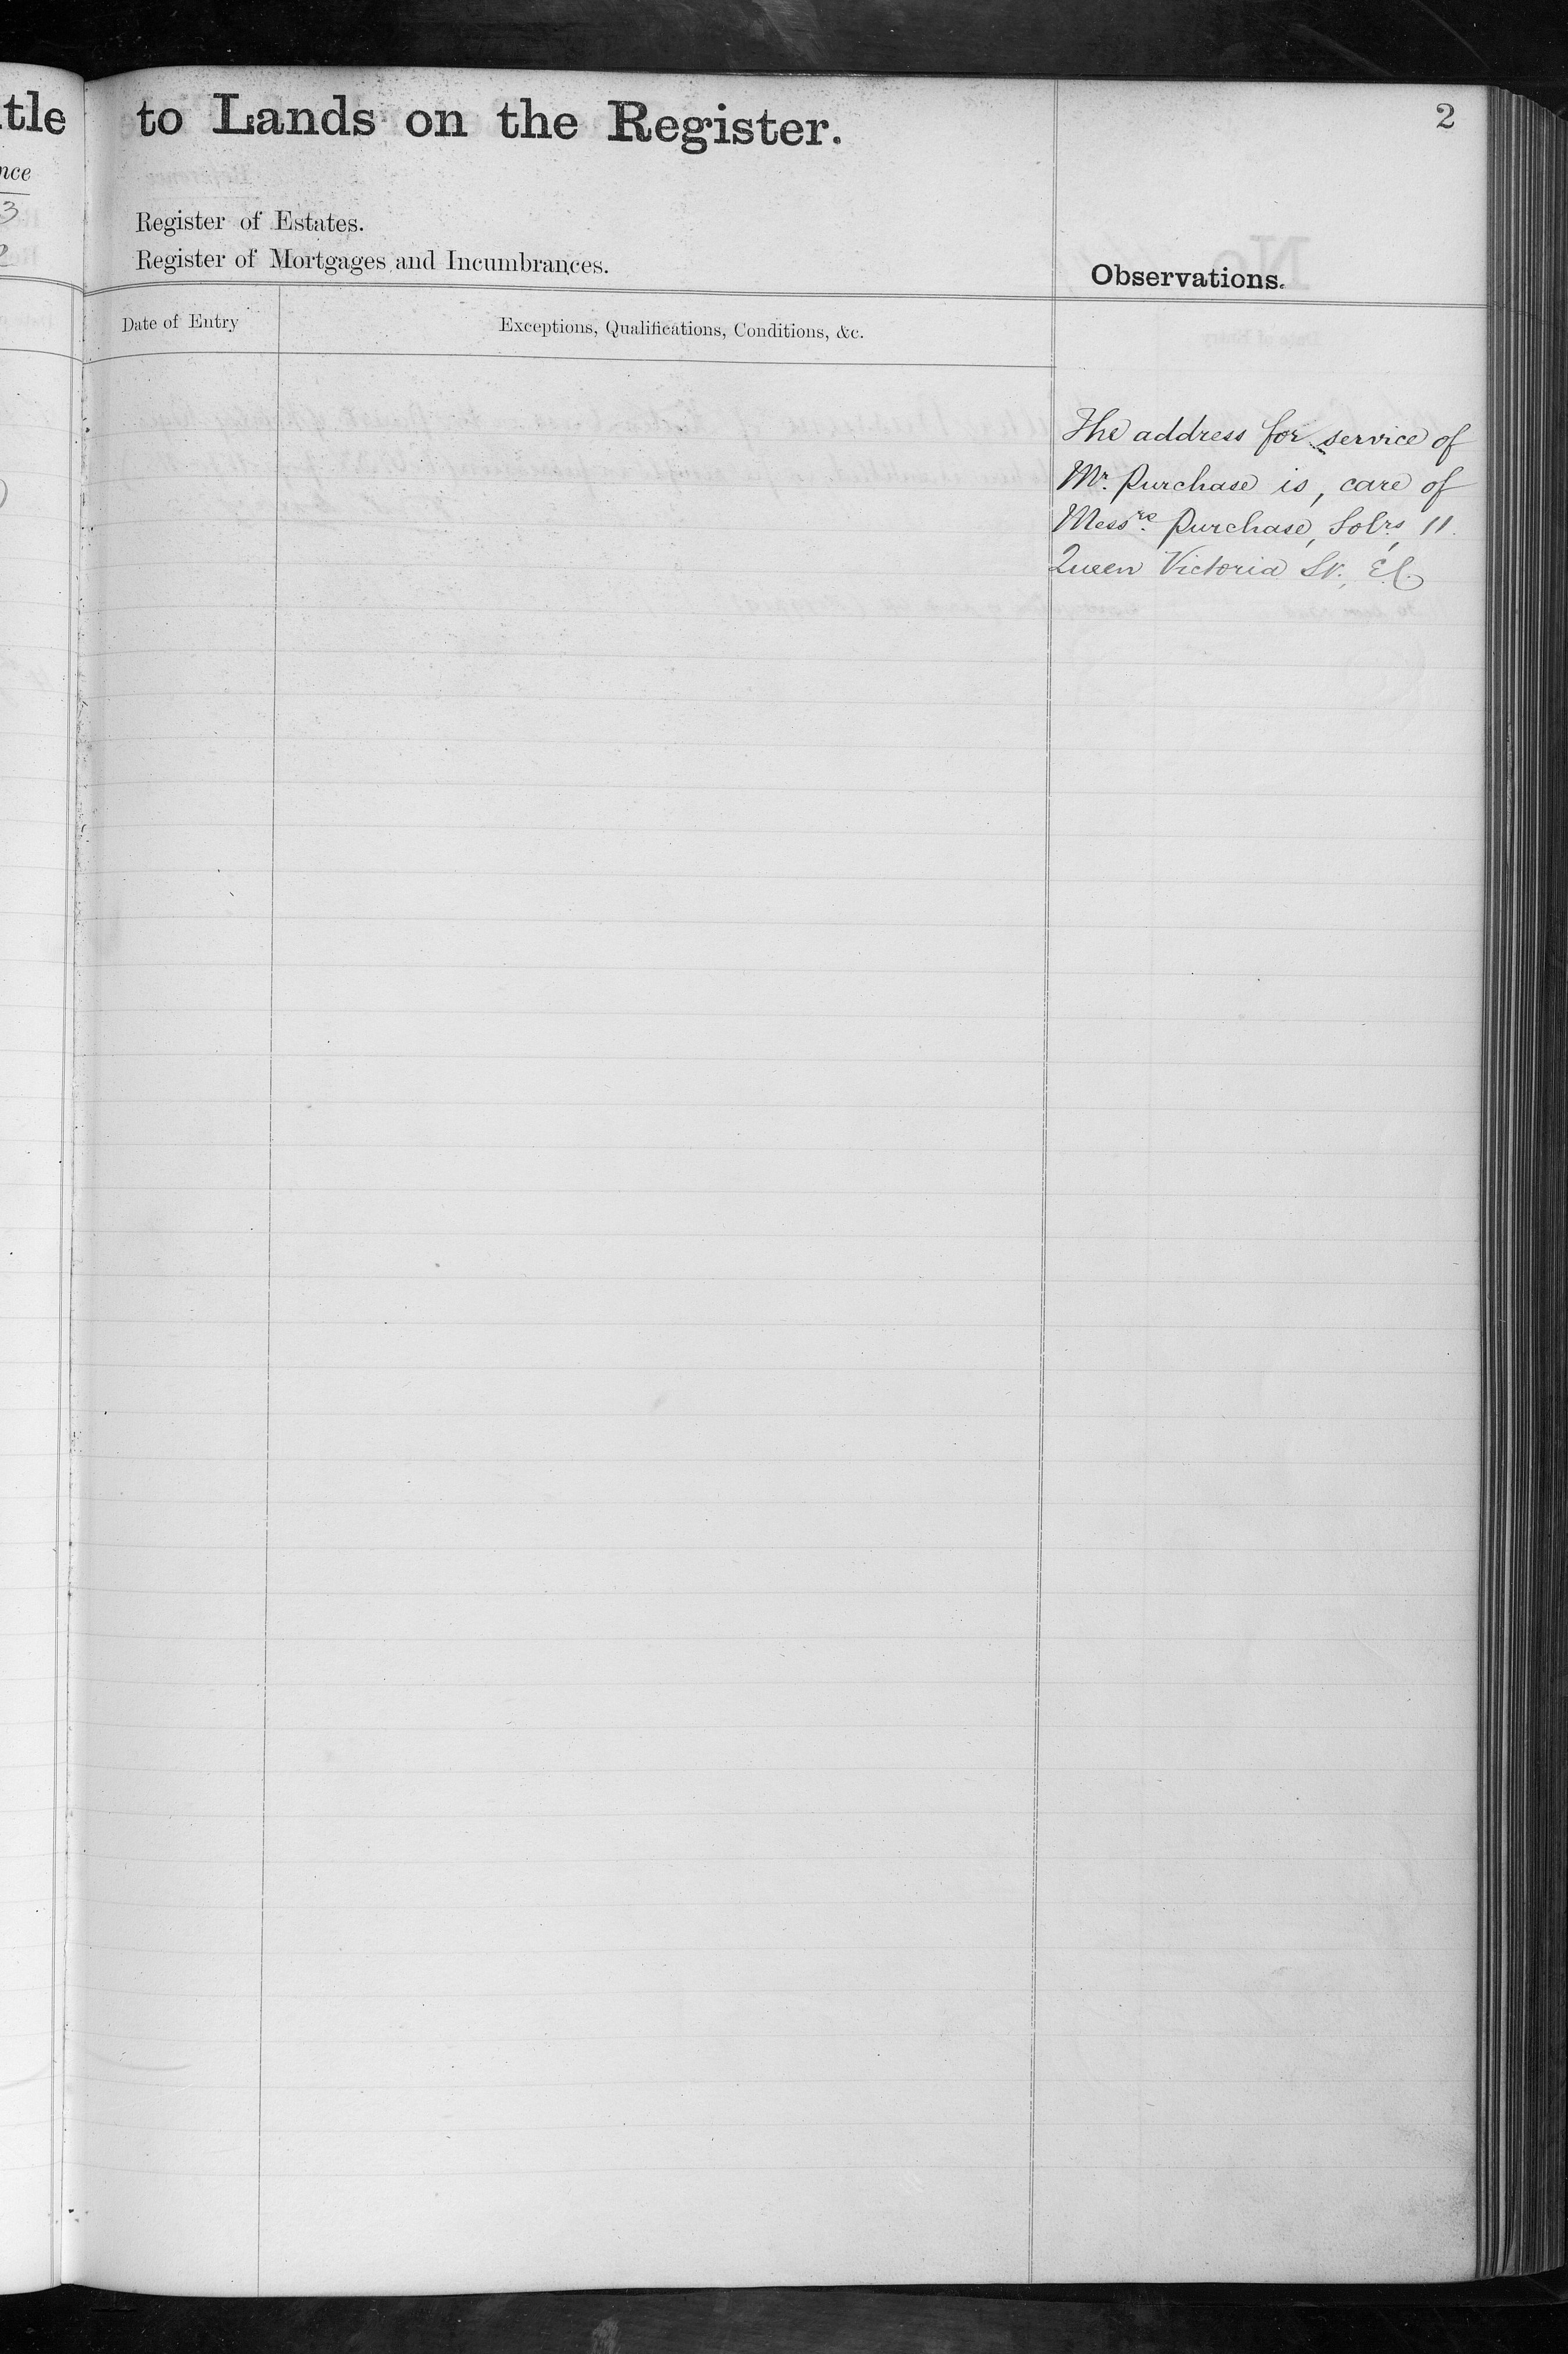 tle to Lands on the Register. 2
nce
3
Register of Estates.
Register of Mortgages and Incumbrances.
Observations.
Date of Entry Exceptions, Qualifications, Conditions, &c.
The address for service of
Mr. Purchase is, care of
Messrs. Purchase, Solrs, 11.
Queen Victoria St., E.C.